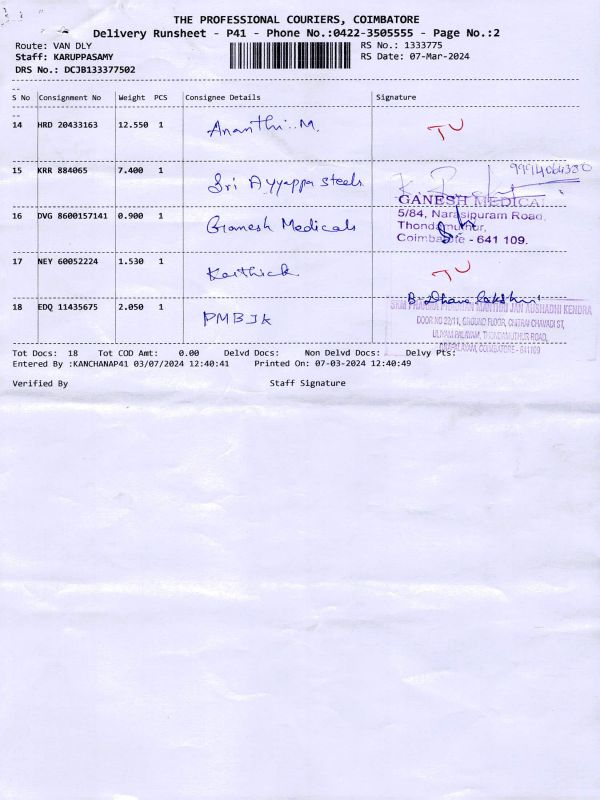 THE PROFESSIONAL COURIERS, COIMBATORE
Delivery Runsheet - P41 - Phone No.:0422-3505555 - Page No.:2
Route: VAN DLY
RS No.: 1333775
Staff: KARUPPASAMY
RS Date: 07-Mar-2024
DRS No.: DCJB133377502
S No Consignment No Weight PCS Consignee Details Signature
14 HRD 20433163 12.550 1 Ananthi..M. TU
15 KRR 884065 7.400 1 Sri Ayyappa steels 9994064330
16 DVG 8600157141 0.900 1 Ganesh Medicals
GANESH MEDICAL
5/84, Narasipuram Road,
Thondamuthur,
Coimbatore - 641 109.
17 NEY 60052224 1.530 1 Karthick TU
18 EDQ 11435675 2.050 1 PMBJK
B. Dhana lakshmi
JAN AUSHADHI KENDRA
DOOR NO 22/11, GROUND FLOOR, CHITRAI CHAVADI ST,
ULIYAMPALAYAM, THONDAMUTHUR ROAD,
COIMBATORE - 641109
Tot Docs: 18 Tot COD Amt: 0.00 Delvd Docs: Non Delvd Docs: Delvy Pts:
Entered By :KANCHANAP41 03/07/2024 12:40:41 Printed On: 07-03-2024 12:40:49
Verified By Staff Signature